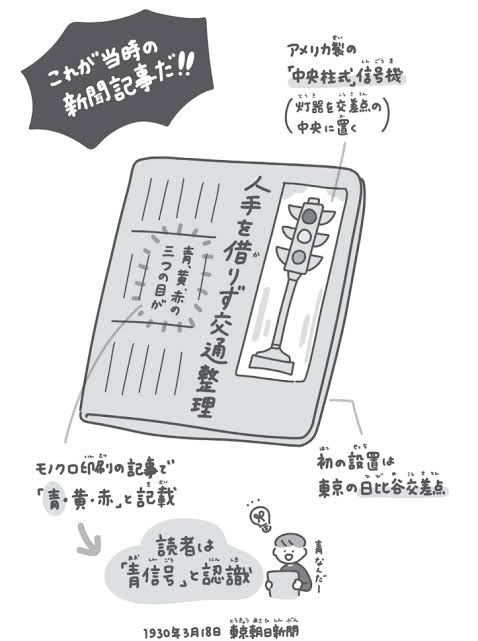 これが当時の
新聞記事だ!!
アメリカ製の
「中央柱式」信号機
(灯器を交差点の
中央に置く)
人手を借りず交通整理
青、黄、赤の
三つの目が
モノクロ印刷の記事で
「青・黄・赤」と記載
初の設置は
東京の日比谷交差点
読者は
「青信号」と認識
青なんだー
1930年3月18日 東京朝日新聞